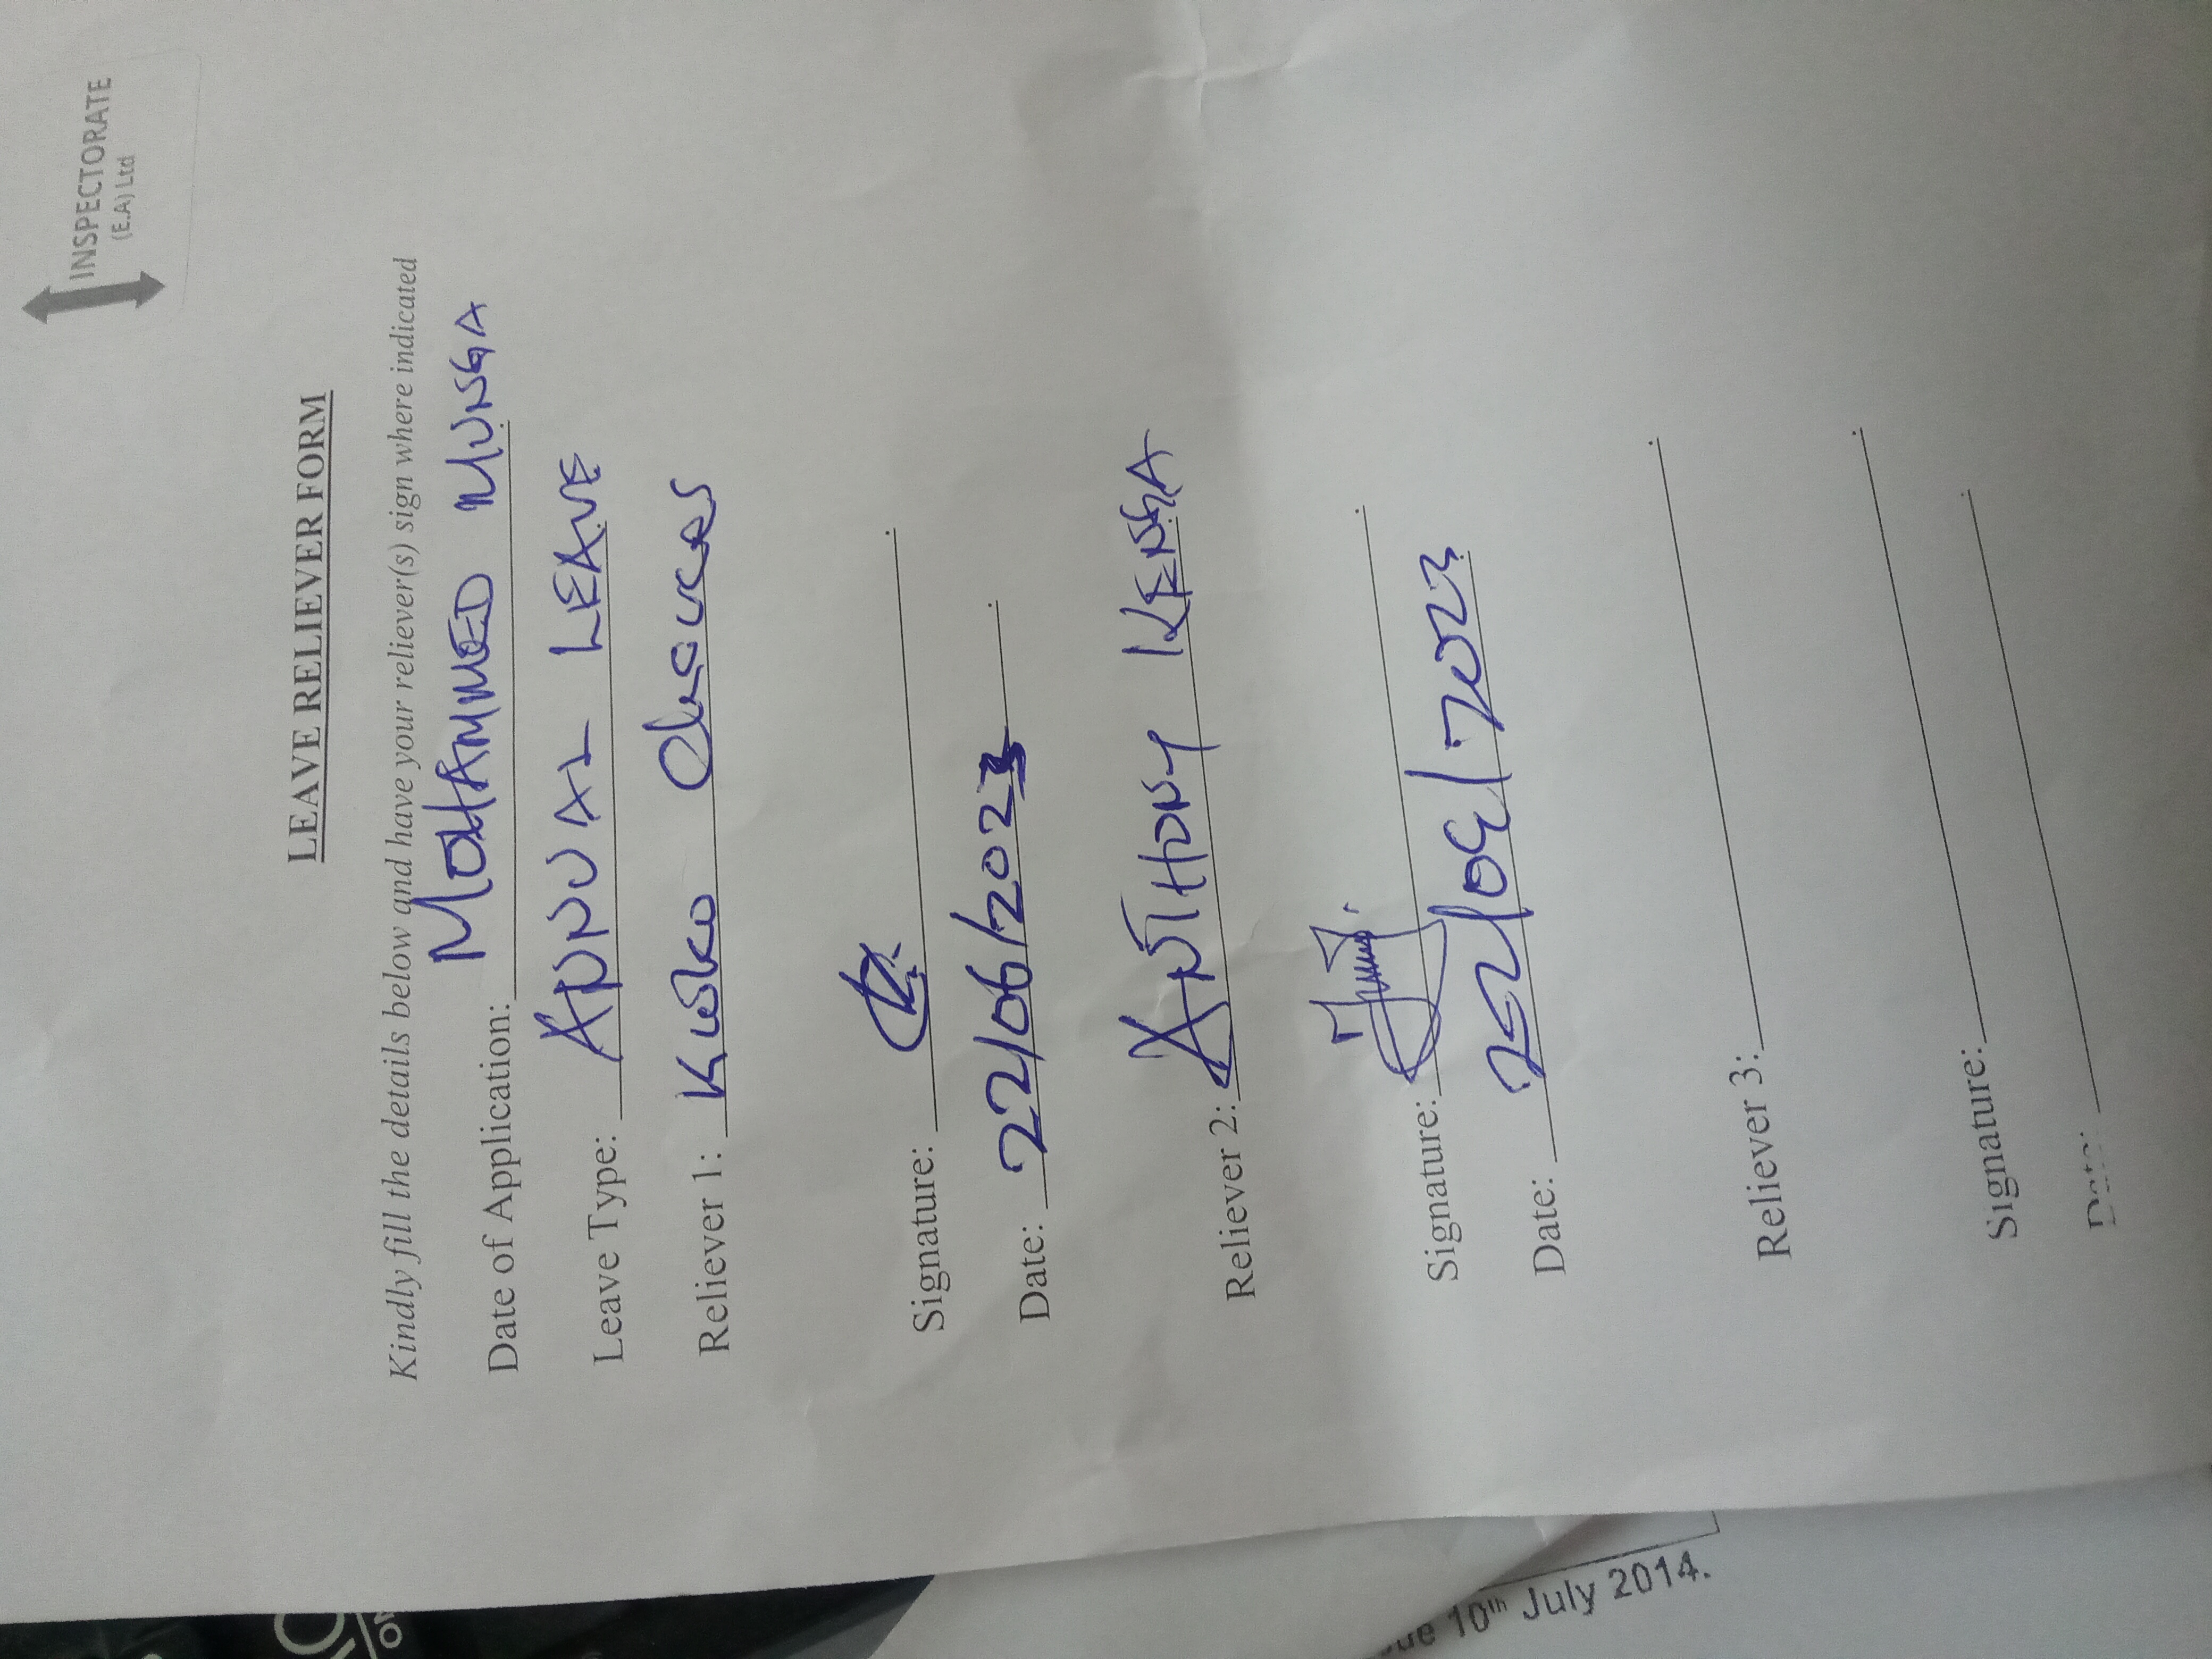 INSPECTORATE
(E.A) Ltd
LEAVE RELIEVER FORM
Kindly fill the details below and have your reliever(s) sign where indicated
Date of Application: MOHAMMED MUNGA
Leave Type: ANNUAL LEAVE
Reliever 1: Kioko
Signature:
Date: 22/06/2023
Reliever 2: ANTHONY KENGA
Signature:
Date: 22/06/2023
Reliever 3:
Signature:
Date:
10th July 2014.